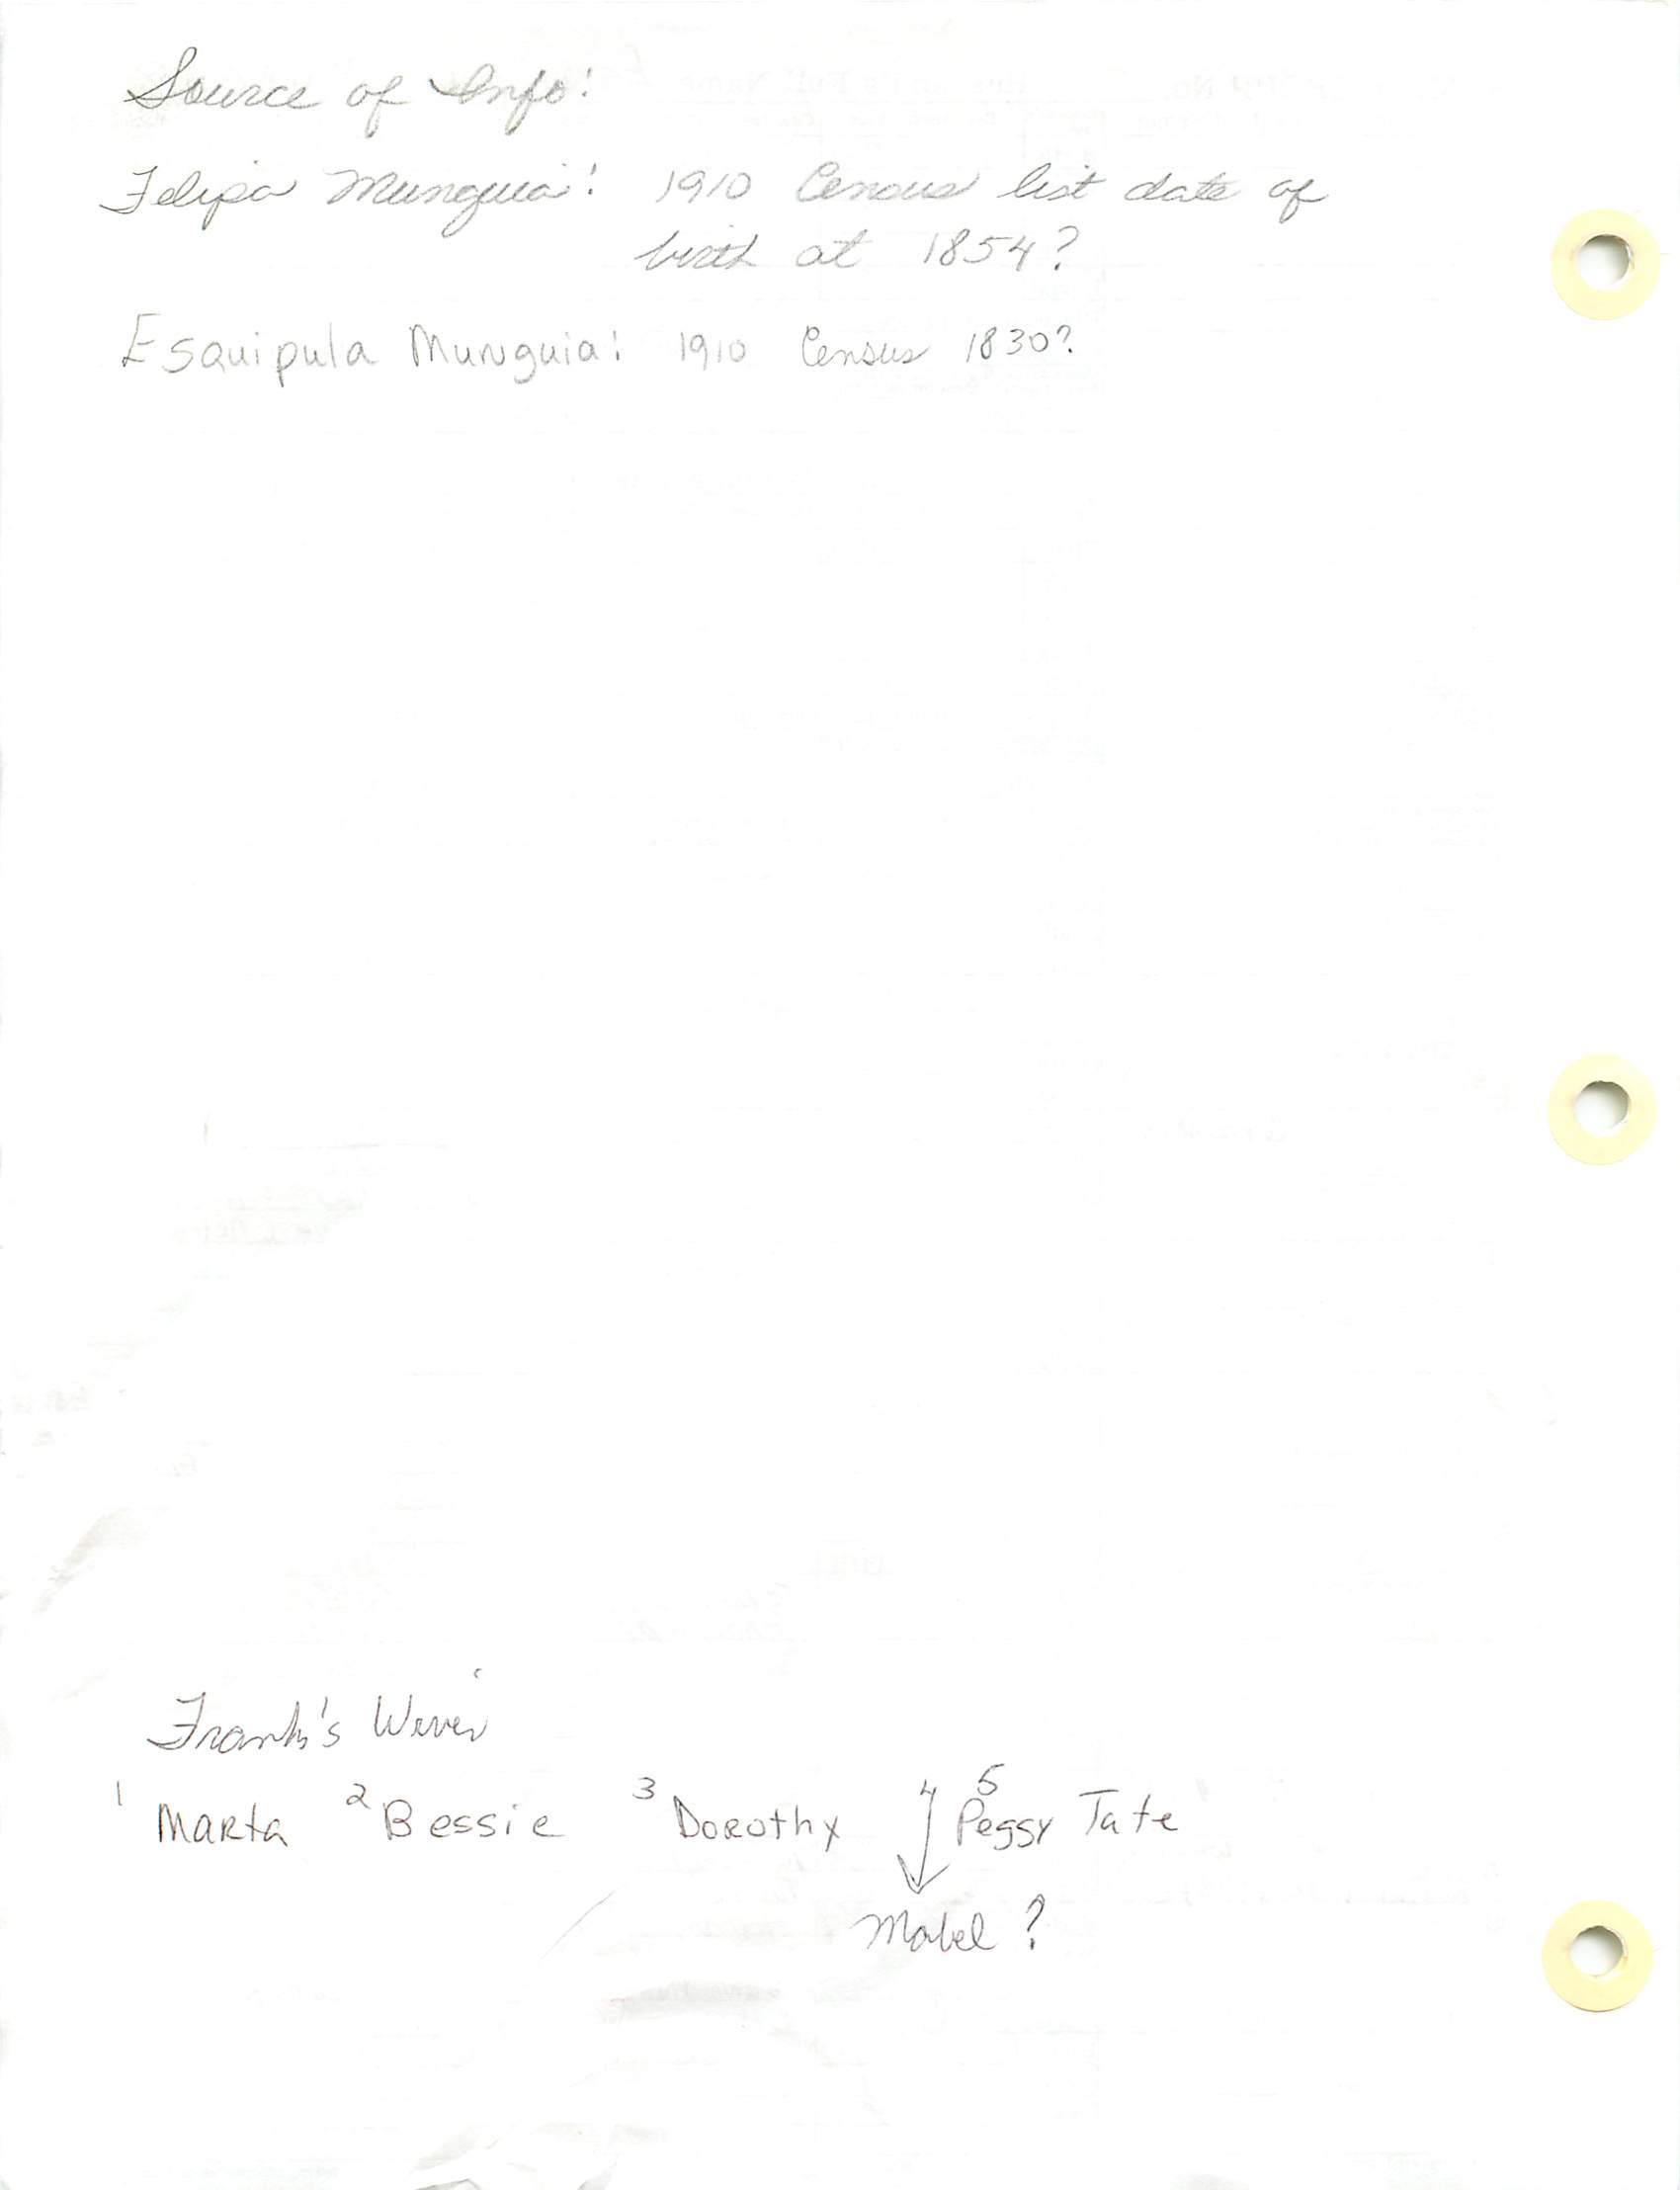 Source of Info:
Felipa Munguia: 1910 Census list date of
birth at 1854?
Esquipula Munguia: 1910 Census 1830?
Frank's Wives
1 Marta 2 Bessie 3 Dorothy 4 5 Peggy Tate
Mabel ?